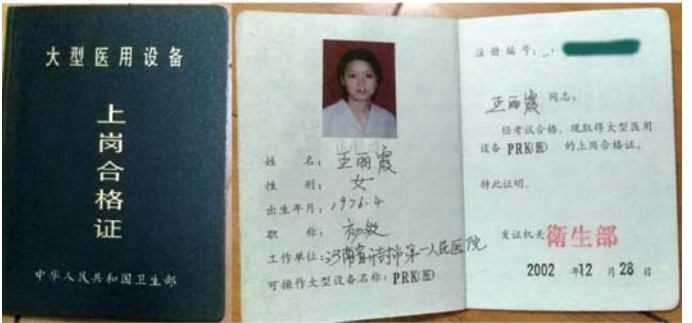 大型医用设备
上岗合格证
中华人民共和国卫生部
姓 名：王丽霞
性 别：女
出生年月：1976.4
职 称：初级
工作单位：河南省开封市第一人民医院
可操作大型设备名称：PRK(医)
注册编号：
王丽霞 同志：
经考试合格，现取得大型医用
设备 PRK(医) 的上岗合格证。
特此证明。
发证机关 衛生部
2002 年12 月 28 日